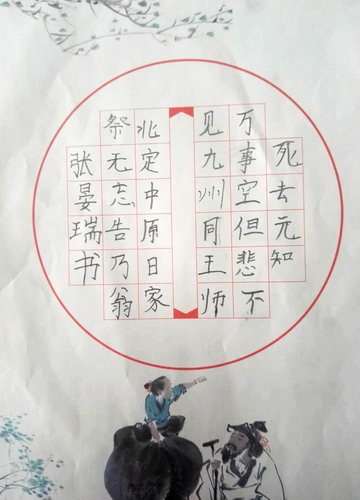 死去元知
万事空但悲不
见九州同王师
北定中原日家
祭无忘告乃翁
张晏瑞书